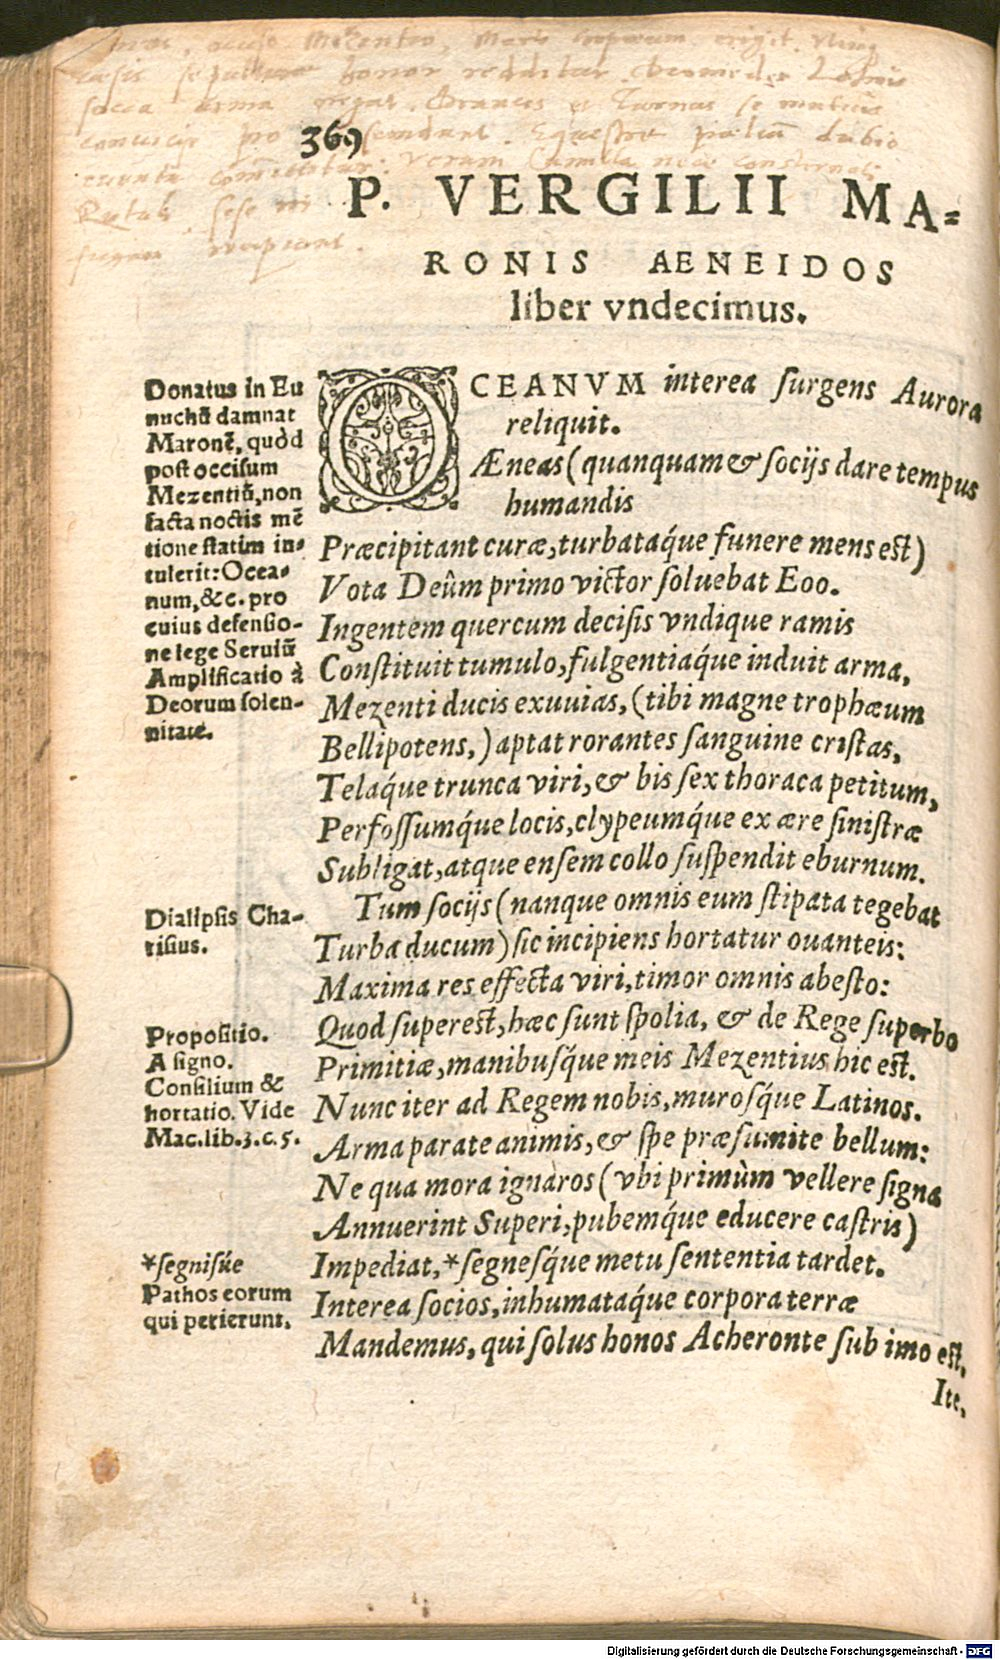 sepulturae honor redditur. Diomedes
arma negat. Drances et Turnus se mutuis
convicijs pro
369
P. VERGILII MA=
RONIS AENEIDOS
liber vndecimus.
Donatus in Eu
nuchũ damnat
Maronẽ, quòd
post occisum
Mezentiũ, non
facta noctis mẽ
tione statim in-
tulerit: Ocea-
num, &c. pro
cuius defensio-
ne lege Seruiũ
Amplificatio à
Deorum solen-
nitate.
OCEANVM interea surgens Aurora
reliquit.
Æneas (quanquam & socijs dare tempus
humandis
Præcipitant curæ, turbataq́ue funere mens est)
Vota Deûm primo victor soluebat Eoo.
Ingentem quercum decisis vndique ramis
Constituit tumulo, fulgentiaq́ue induit arma,
Mezenti ducis exuuias, (tibi magne trophæum
Bellipotens,) aptat rorantes sanguine cristas,
Telaq́ue trunca viri, & bis sex thoraca petitum,
Perfossumq́ue locis, clypeumq́ue ex ære sinistræ
Subligat, atque ensem collo suspendit eburnum.
Dialipsis Cha-
risius.
Tum socijs (nanque omnis eum stipata tegebat
Turba ducum) sic incipiens hortatur ouanteis:
Maxima res effecta viri, timor omnis abesto:
Propositio.
A signo.
Consilium &
hortatio. Vide
Mac. lib. 3. c. 5.
Quod superest, hæc sunt spolia, & de Rege superbo
Primitiæ, manibusq́ue meis Mezentius hic est.
Nunc iter ad Regem nobis, murosq́ue Latinos.
Arma parate animis, & spe præsumite bellum:
Ne qua mora ignaros (vbi primùm vellere signa
Annuerint Superi, pubemq́ue educere castris)
*segnisúe
Pathos eorum
qui perierunt.
Impediat, *segnesq́ue metu sententia tardet.
Interea socios, inhumataq́ue corpora terræ
Mandemus, qui solus honos Acheronte sub imo est.
Ite,
Digitalisierung gefördert durch die Deutsche Forschungsgemeinschaft - DFG